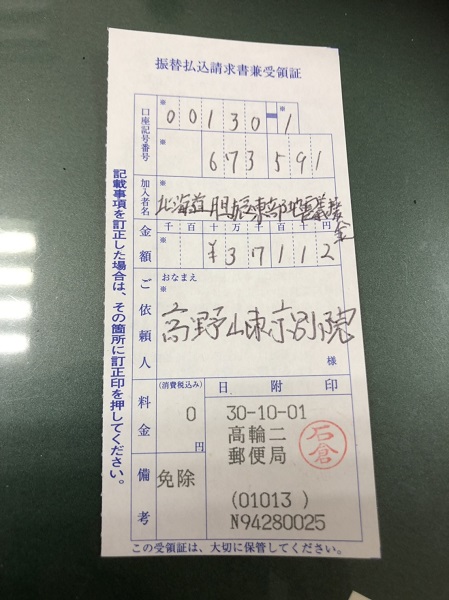 振替払込請求書兼受領証
口座記号番号
※ ※
00130-1
※
673591
加入者名
※
北海道胆振東部地震義援金
金額
千百十万千百十円
※
¥37112
ご依頼人
おなまえ
※
高野山東京別院
様
料金
(消費税込み)
0
円
備考
免除
日附印
30-10-01
高輪二
郵便局
石倉
(01013 )
N94280025
記載事項を訂正した場合は、その箇所に訂正印を押してください。
この受領証は、大切に保管してください。